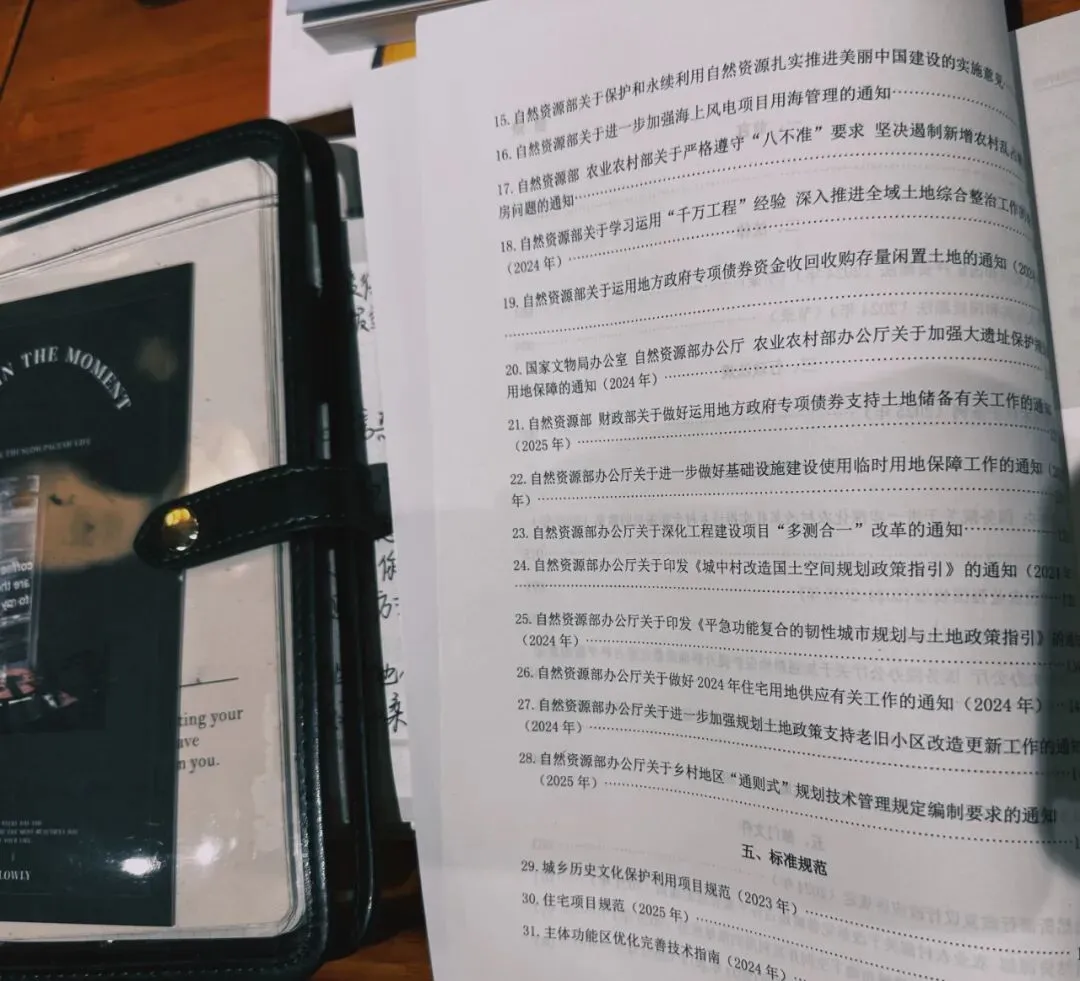 IN THE MOMENT
THE SLOW PACE OF LIFE
ting your
ave
n you.
LOWLY
15. 自然资源部关于保护和永续利用自然资源扎实推进美丽中国建设的实施意见
16. 自然资源部关于进一步加强海上风电项目用海管理的通知
17. 自然资源部 农业农村部关于严格遵守“八不准”要求 坚决遏制新增农村乱占
房问题的通知
18. 自然资源部关于学习运用“千万工程”经验 深入推进全域土地综合整治工作的
（2024 年）
19. 自然资源部关于运用地方政府专项债券资金收回收购存量闲置土地的通知（202
20. 国家文物局办公室 自然资源部办公厅 农业农村部办公厅关于加强大遗址保护
用地保障的通知（2024 年）
21. 自然资源部 财政部关于做好运用地方政府专项债券支持土地储备有关工作的通知
（2025 年）
22. 自然资源部办公厅关于进一步做好基础设施建设使用临时用地保障工作的通知（2
年）
23. 自然资源部办公厅关于深化工程建设项目“多测合一”改革的通知
24. 自然资源部办公厅关于印发《城中村改造国土空间规划政策指引》的通知（2024 年
25. 自然资源部办公厅关于印发《平急功能复合的韧性城市规划与土地政策指引》的通知
（2024 年）
26. 自然资源部办公厅关于做好 2024 年住宅用地供应有关工作的通知（2024 年）
27. 自然资源部办公厅关于进一步加强规划土地政策支持老旧小区改造更新工作的通知
（2024 年）
28. 自然资源部办公厅关于乡村地区“通则式”规划技术管理规定编制要求的通知
（2025 年）
五、标准规范
29. 城乡历史文化保护利用项目规范（2023 年）
30. 住宅项目规范（2025 年）
31. 主体功能区优化完善技术指南（2024 年）